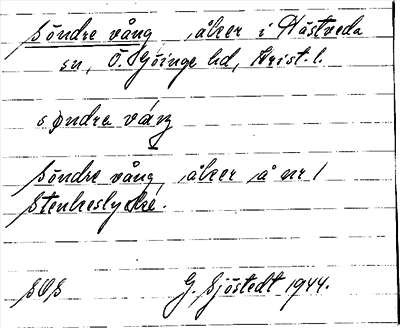 Söndre vång, åker i Hästveda
sn, Ö. Göinge hd, Krist. l.
søndra våŋ
Söndre vång, åker å nr 1
Stenkeslycke.
SOS
G. Sjöstedt 1944.